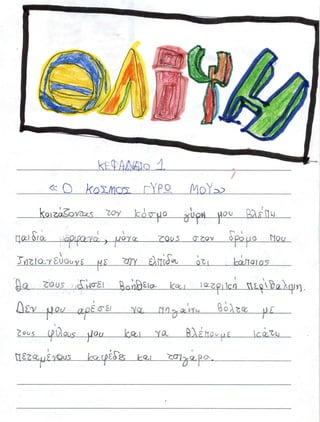 ΘΛΙΨΗ
ΚΕΦΑΛΑΙΟ 1
«Ο ΚΟΣΜΟΣ ΓΥΡΩ ΜΟΥ»
Κοιτάζοντας τον κόσμο γύρη μου βλέπη
παιδιά ορφανά, μόνα τους στον δρόμο που
ζητιανεύουνε με την ελπίδα ότι κάποιος
θα τους δήσει βοήθεια και ιατρική περίθαλψη.
Δεν μου αρέσει να πηγαίνη βόλτα με
τους φίλους μου και να βλέπουμε κάτη
πεταμένους καφέδες και τσιγάρα.